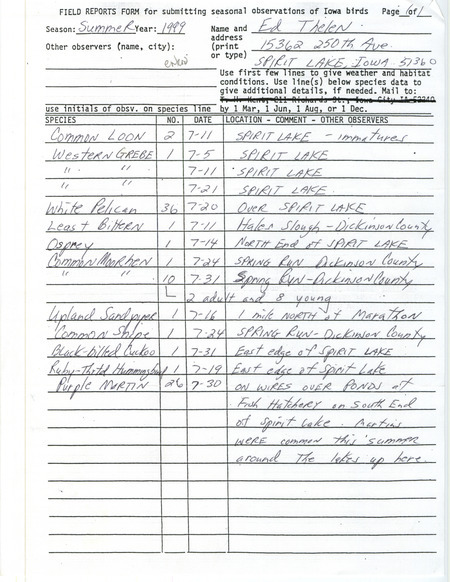 FIELD REPORTS FORM for submitting seasonal observations of Iowa birds Page 1 of 1
Season: Summer Year: 1999 Name and address (print or type) Ed Thelen
15362 250th Ave
SPIRIT LAKE, IOWA 51360
Other observers (name, city):
Use first few lines to give weather and habitat
conditions. Use line(s) below species data to
give additional details, if needed. Mail to:
use initials of obsv. on species line by 1 Mar, 1 Jun, 1 Aug, or 1 Dec.
SPECIES NO. DATE LOCATION - COMMENT - OTHER OBSERVERS
Common LOON 2 7-11 SPIRIT LAKE - immatures
Western GREBE 1 7-5 SPIRIT LAKE
" " 7-11 SPIRIT LAKE
" " 7-21 SPIRIT LAKE
White Pelican 36 7-20 Over SPIRIT LAKE
Least Bittern 1 7-11 Hales Slough - Dickinson County
Osprey 1 7-14 North End of SPIRIT LAKE
Common Moorhen 1 7-24 SPRING RUN Dickinson County
" " 10 7-31 Spring Run - Dickinson County
2 adult and 8 young
Upland Sandpiper 1 7-16 1 mile NORTH of Marathon
Common Snipe 1 7-24 SPRING RUN - Dickinson County
Black-billed Cuckoo 1 7-31 East edge of SPIRIT LAKE
Ruby-Thrtd Hummingbird 1 7-19 East edge of Spirit Lake
Purple MARTIN 26 7-30 ON WIRES OVER PONDS at
Fish Hatchery on South End
of Spirit Lake. Martins
were common this summer
around The lakes up here.